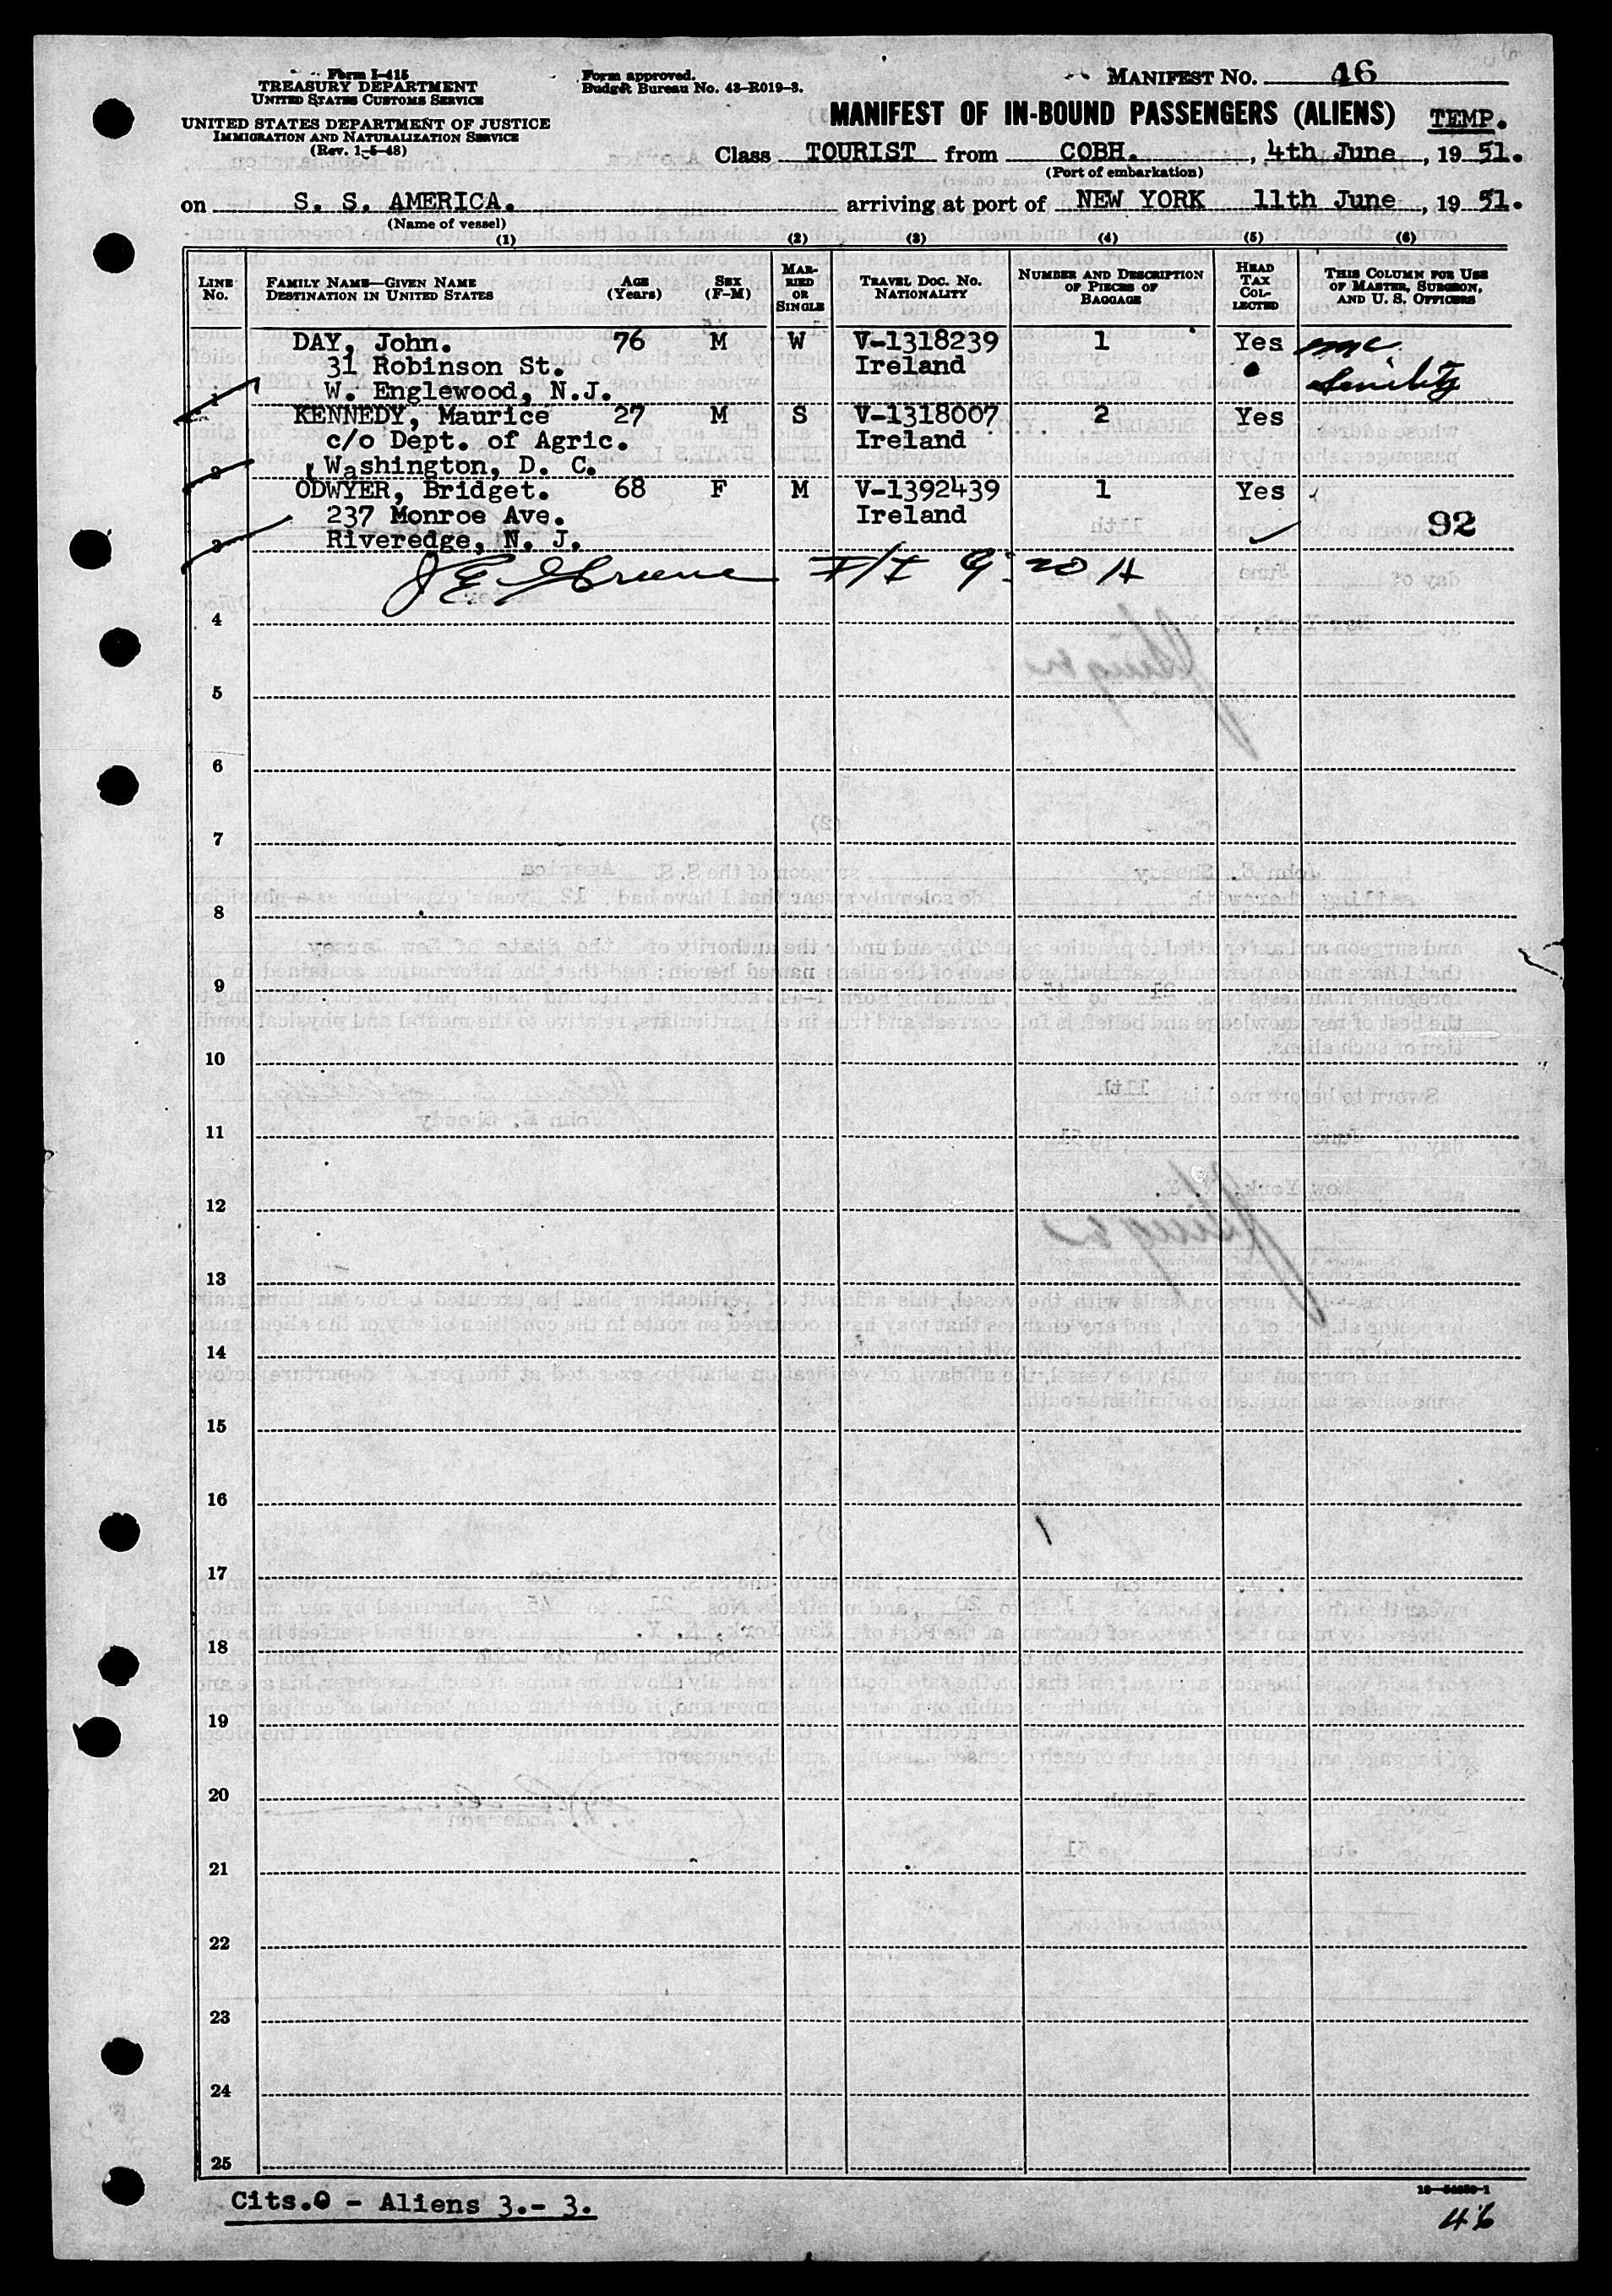 Form I-415
TREASURY DEPARTMENT
UNITED STATES CUSTOMS SERVICE
UNITED STATES DEPARTMENT OF JUSTICE
IMMIGRATION AND NATURALIZATION SERVICE
(Rev. 1-5-48)
Form approved.
Budget Bureau No. 43-R019-3.
MANIFEST NO. 46
MANIFEST OF IN-BOUND PASSENGERS (ALIENS) TEMP.
Class TOURIST from COBH. , 4th June , 19 51.
(Port of embarkation)
on S. S. AMERICA. arriving at port of NEW YORK 11th June , 19 51.
(Name of vessel)
(1) (2) (3) (4) (5) (6)
LINE No. FAMILY NAME—GIVEN NAME DESTINATION IN UNITED STATES AGE (Years) SEX (F-M) MARRIED OR SINGLE TRAVEL DOC. NO. NATIONALITY NUMBER AND DESCRIPTION OF PIECES OF BAGGAGE HEAD TAX COLLECTED THIS COLUMN FOR USE OF MASTER, SURGEON, AND U. S. OFFICERS
DAY, John. 76 M W V-1318239 1 Yes
31 Robinson St. Ireland
1 W. Englewood, N.J.
KENNEDY, Maurice 27 M S V-1318007 2 Yes
c/o Dept. of Agric. Ireland
2 Washington, D. C.
ODWYER, Bridget. 68 F M V-1392439 1 Yes
237 Monroe Ave. Ireland 92
3 Riveredge, N. J.
J E Greene I/I 9:20 A
4
5
6
7
8
9
10
11
12
13
14
15
16
17
18
19
20
21
22
23
24
25
Cits.0 - Aliens 3.- 3.
46